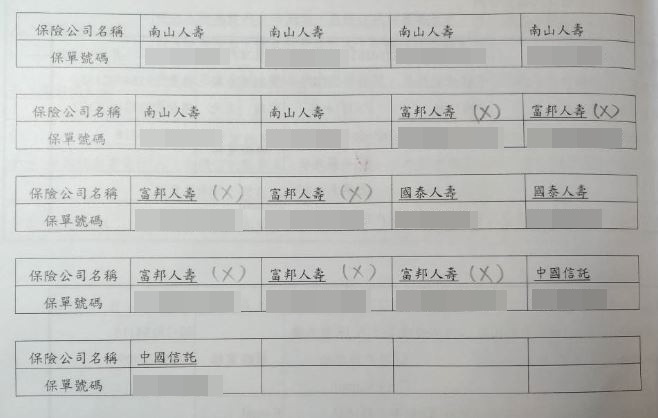 保險公司名稱 南山人壽 南山人壽 南山人壽 南山人壽
保單號碼
保險公司名稱 南山人壽 南山人壽 富邦人壽 (X) 富邦人壽 (X)
保單號碼
保險公司名稱 富邦人壽 (X) 富邦人壽 (X) 國泰人壽 國泰人壽
保單號碼
保險公司名稱 富邦人壽 (X) 富邦人壽 (X) 富邦人壽 (X) 中國信託
保單號碼
保險公司名稱 中國信託
保單號碼